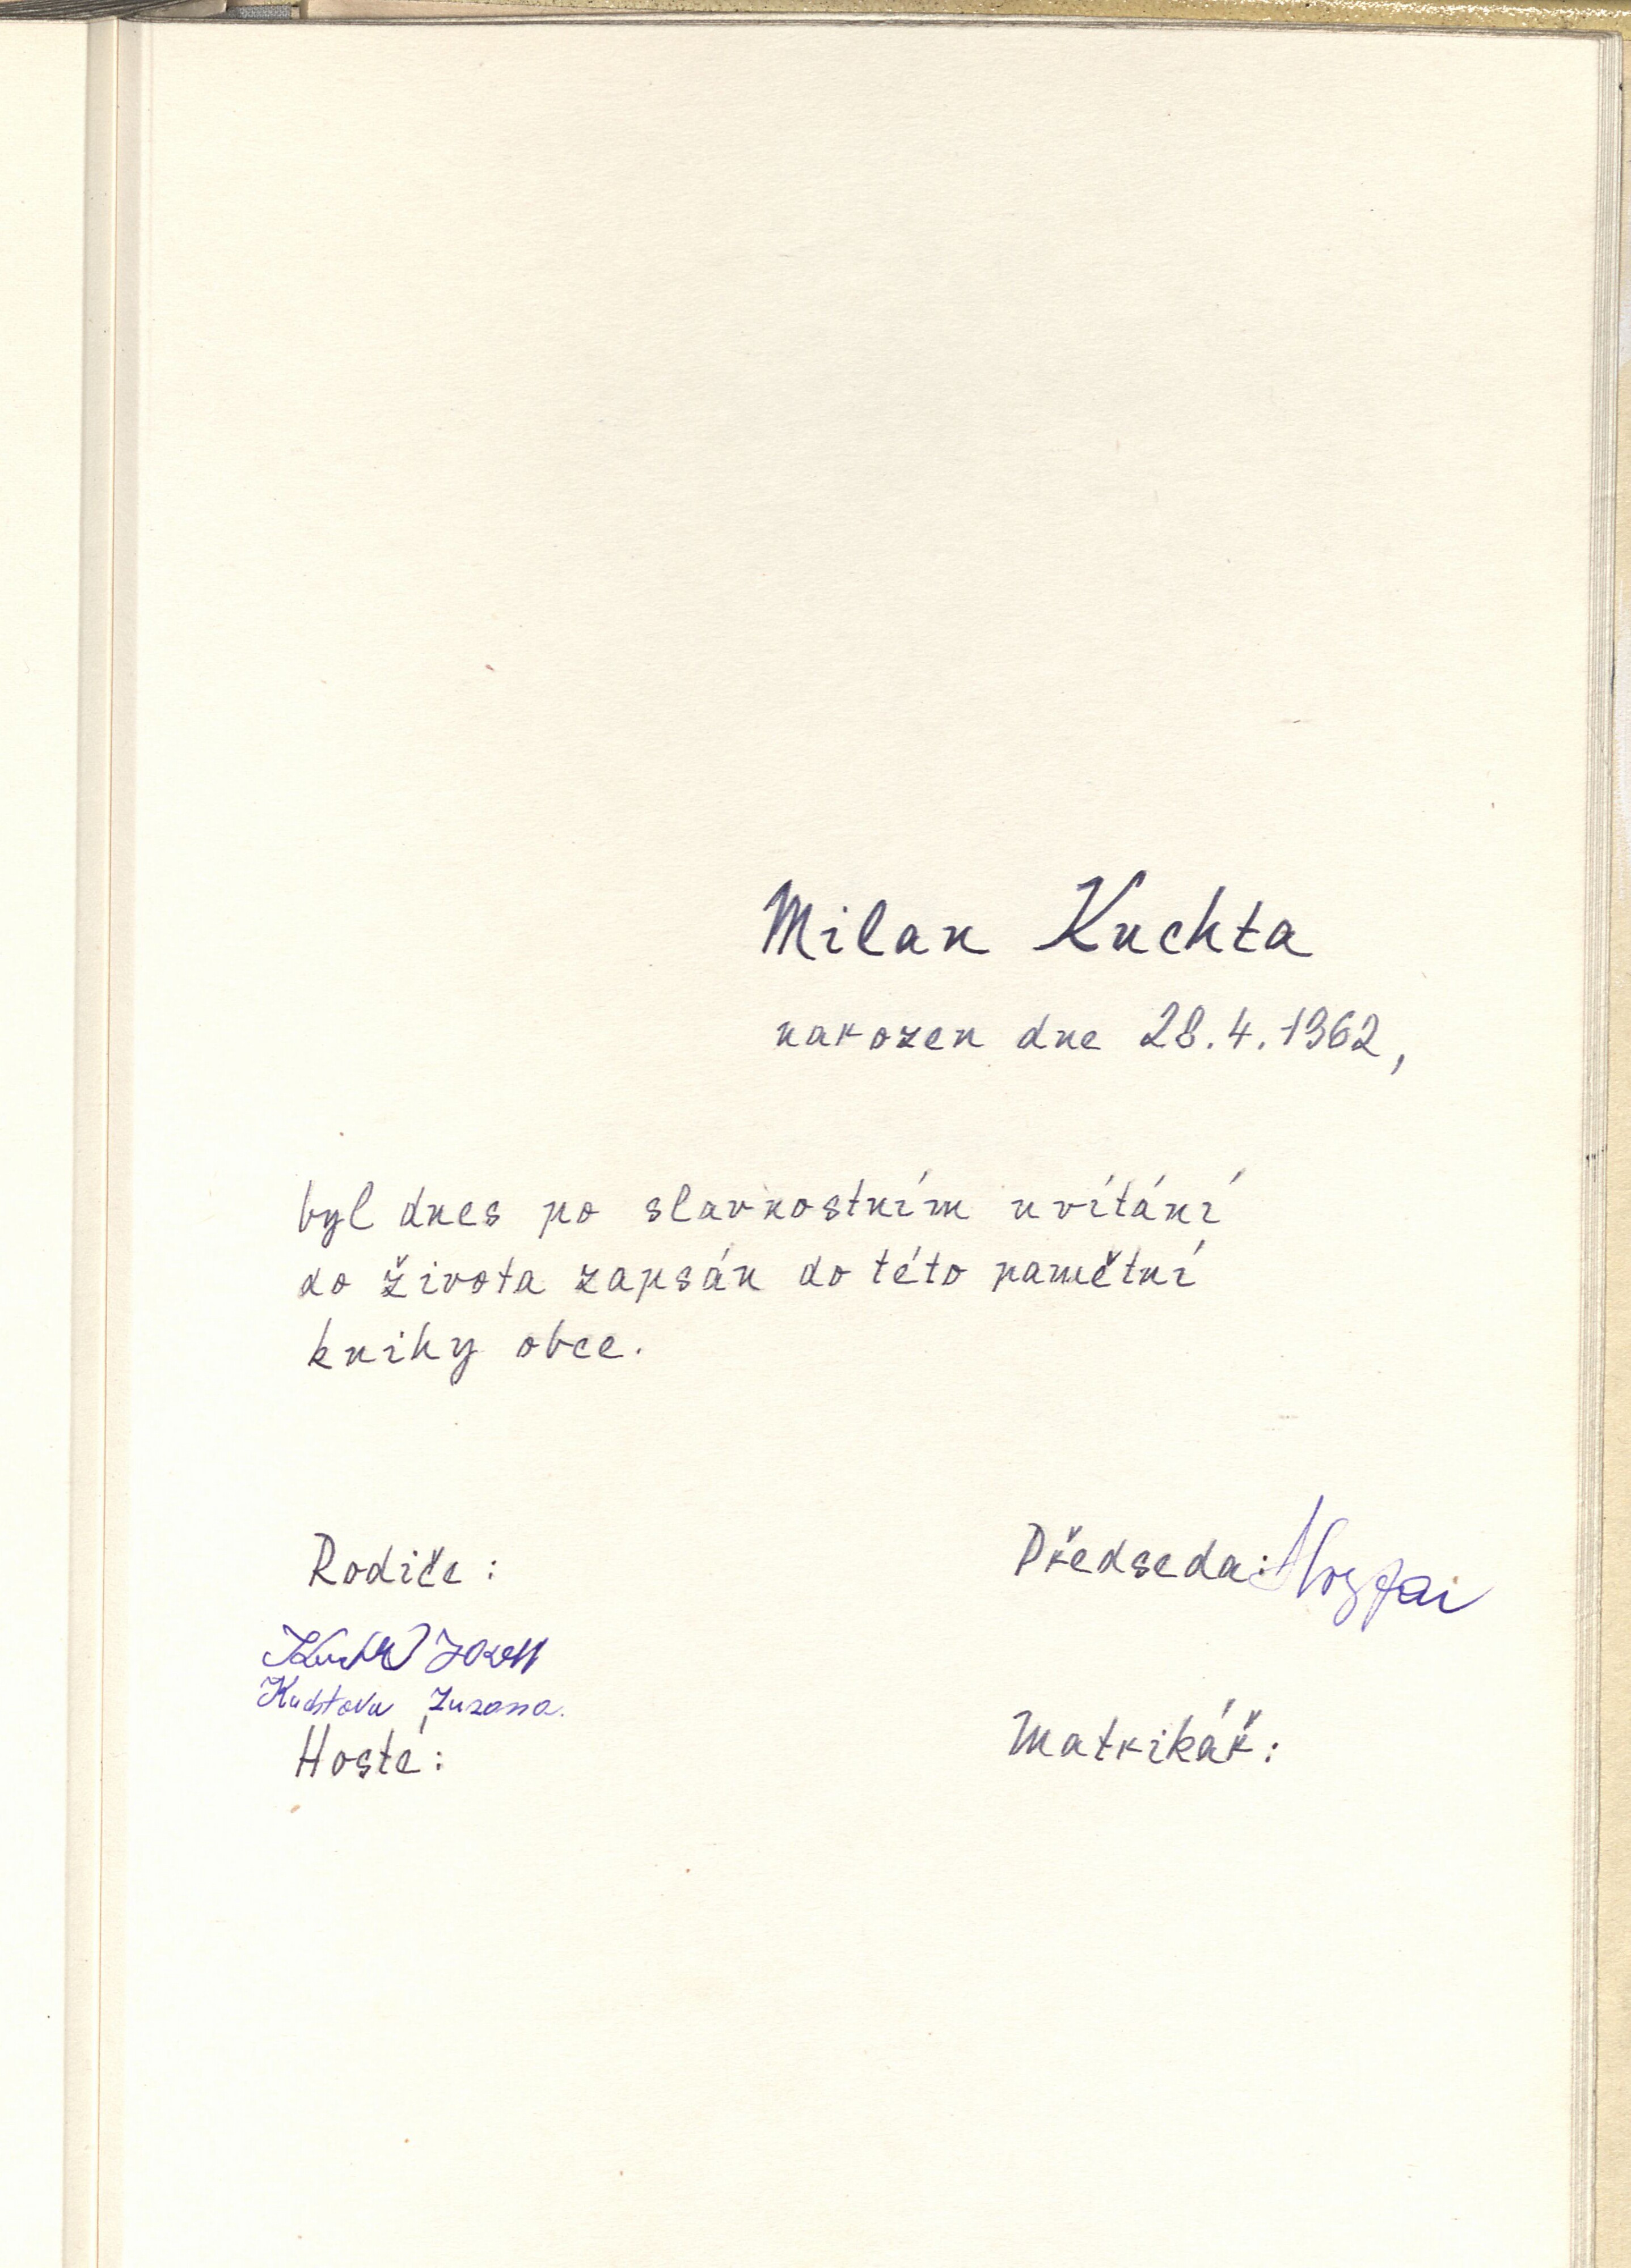 Milan Kuchta
narozen dne 28.4.1962,
byl dnes po slavnostním uvítání
do života zapsán do této pamětní
knihy obce.
Rodiče:
Předseda:
Zuzana.
Hosté:
Matrikář: